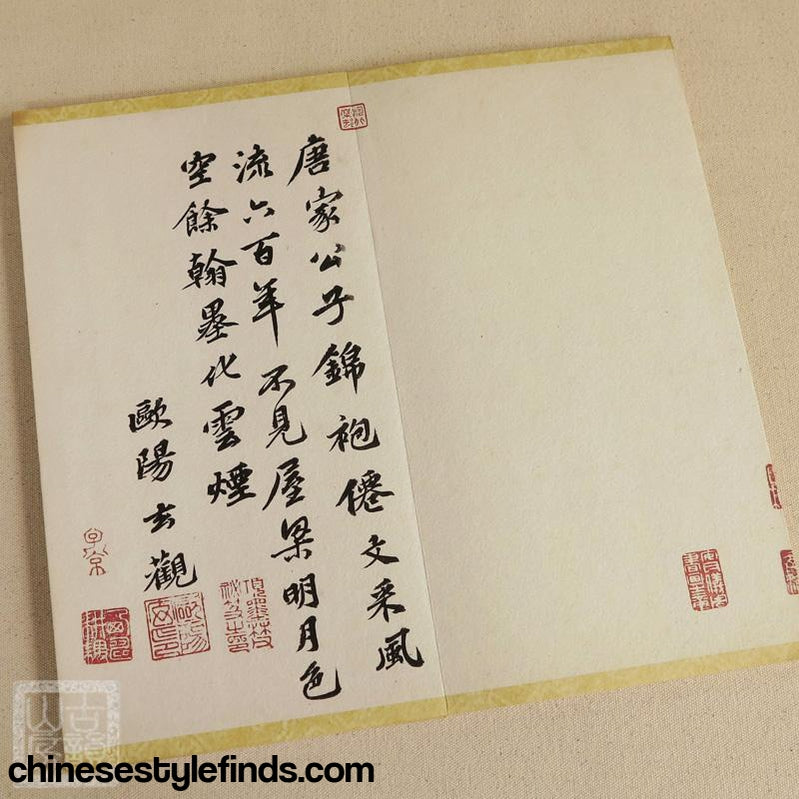 唐家公子錦袍僊文采風
流六百年不見屋梁明月色
空餘翰墨化雲煙
歐陽玄觀
子京
chinesestylefinds.com